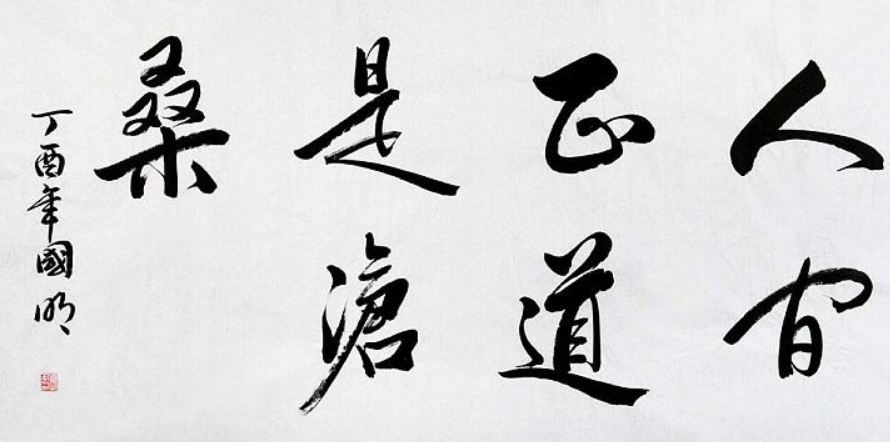 人间
正道
是滄
桑
丁酉年國明